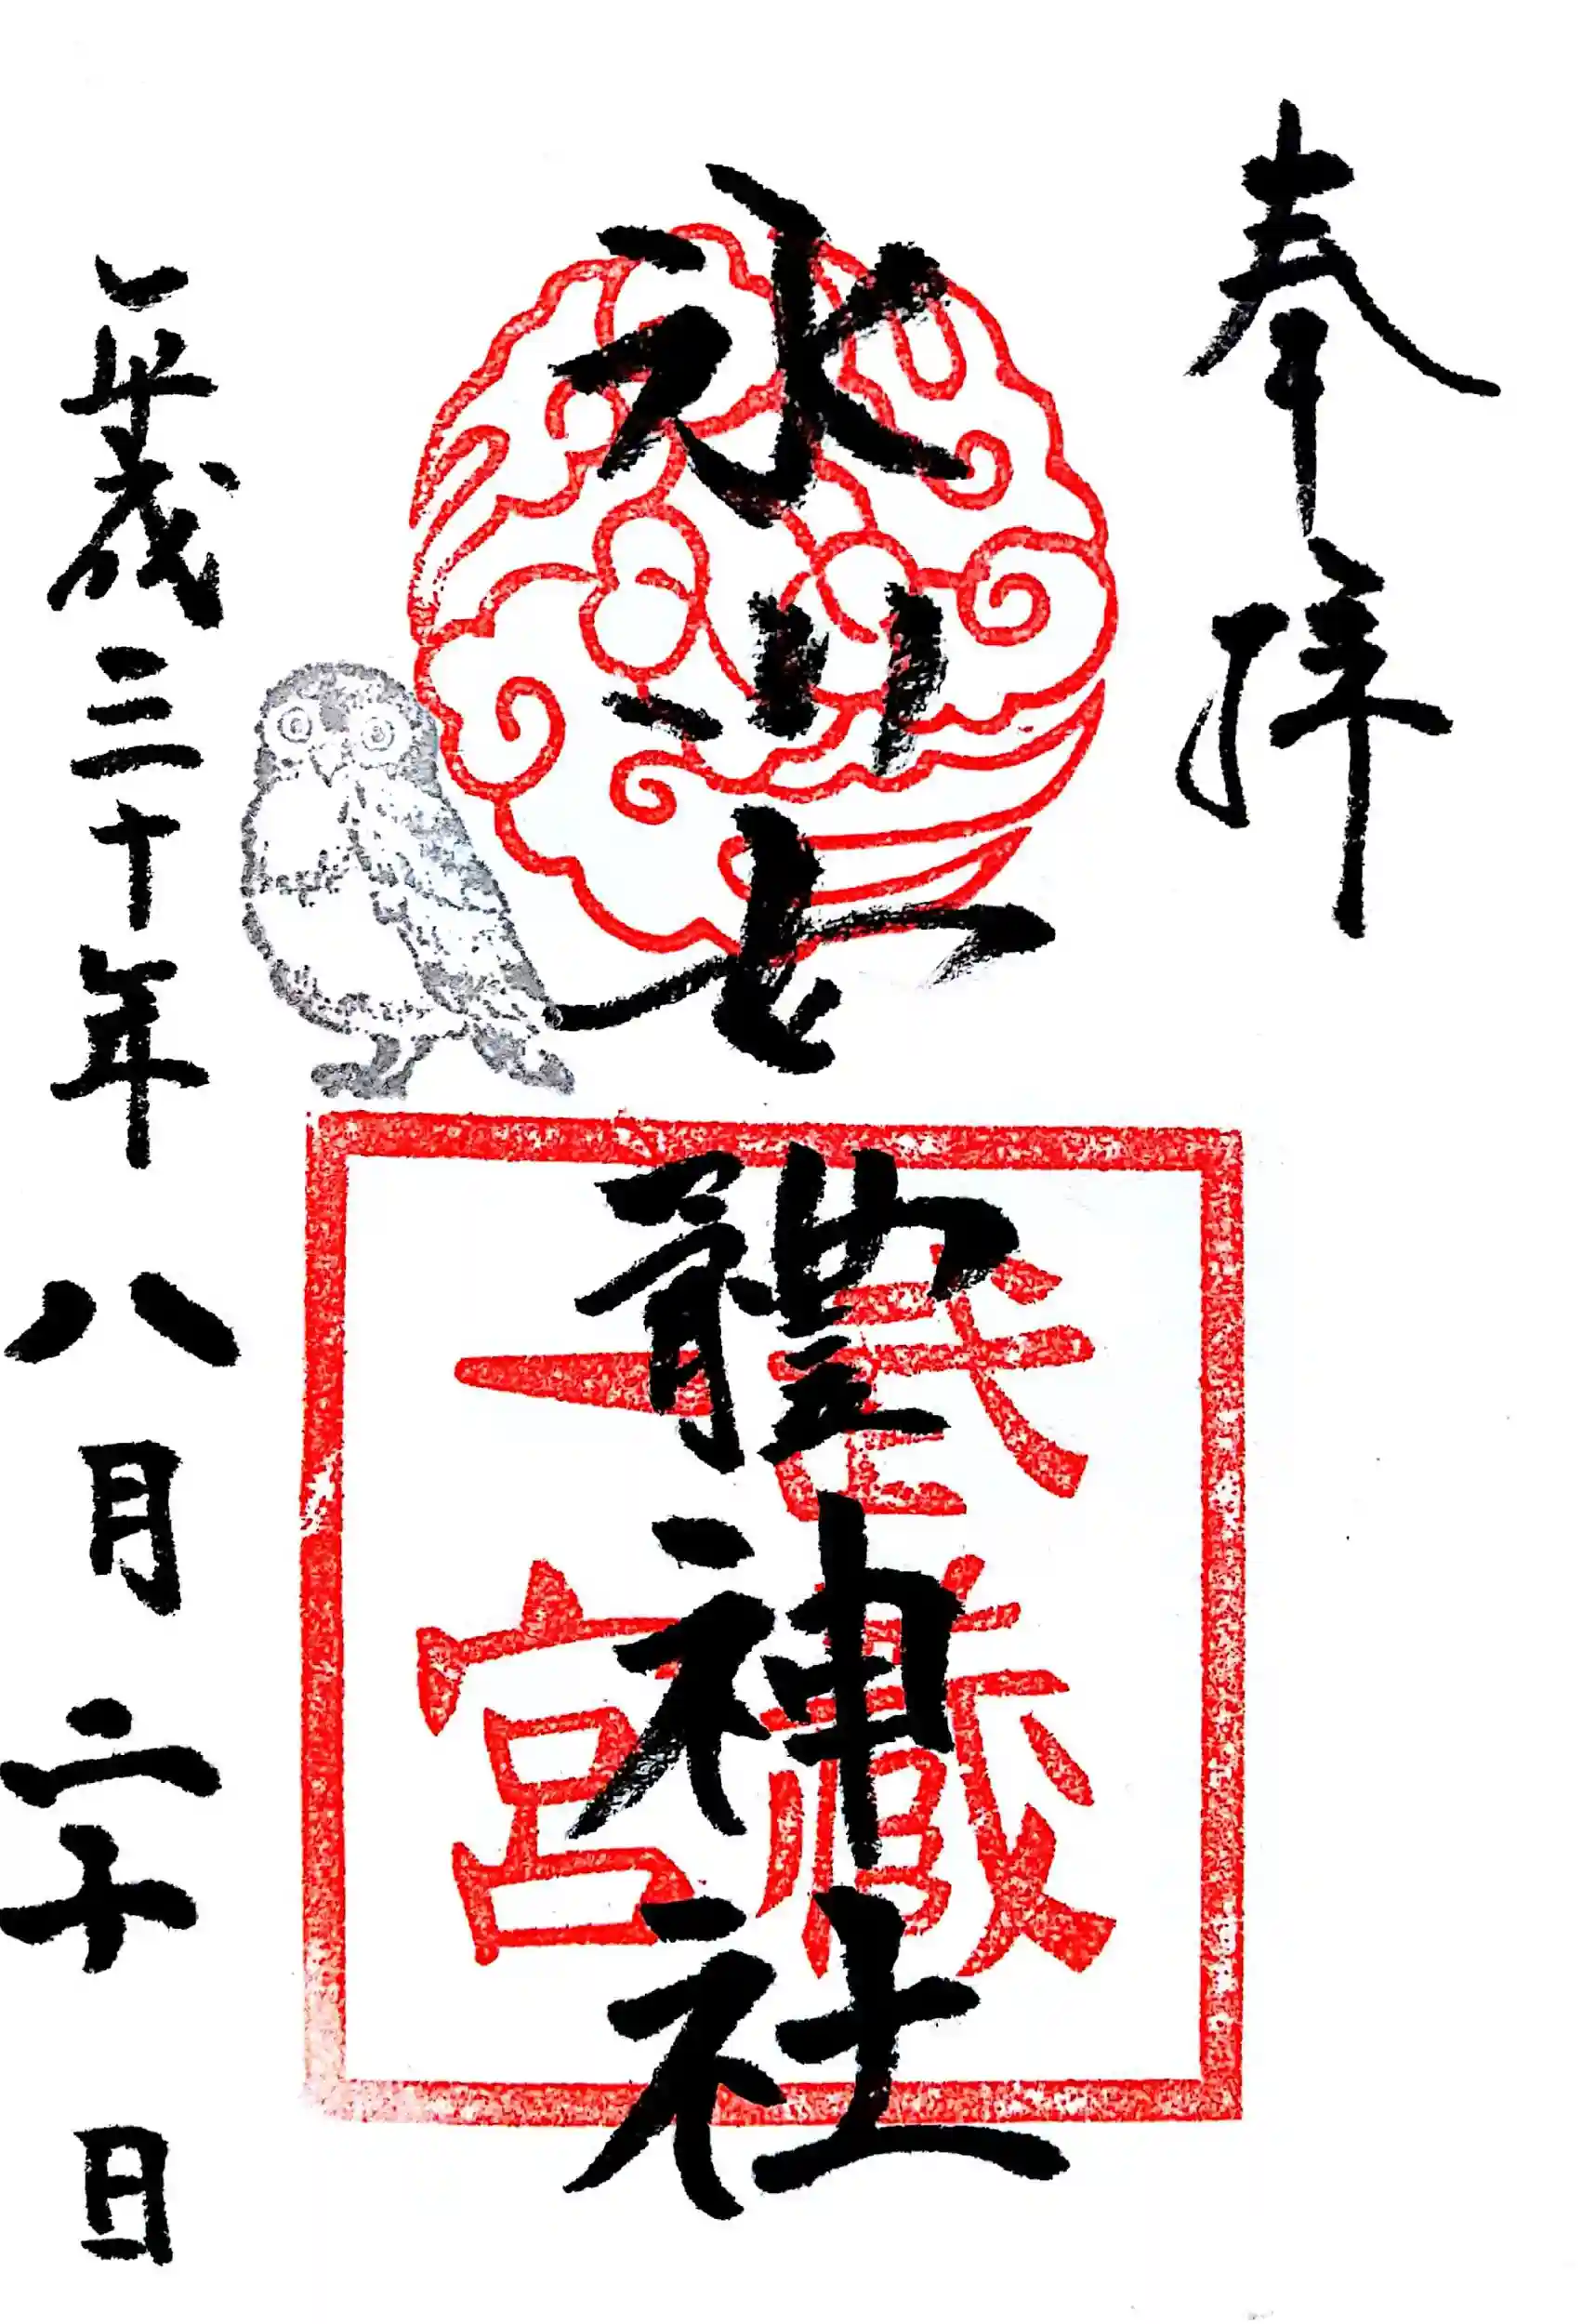 奉拝
氷川女體神社
武藏
一宮
平成三十年八月二十日